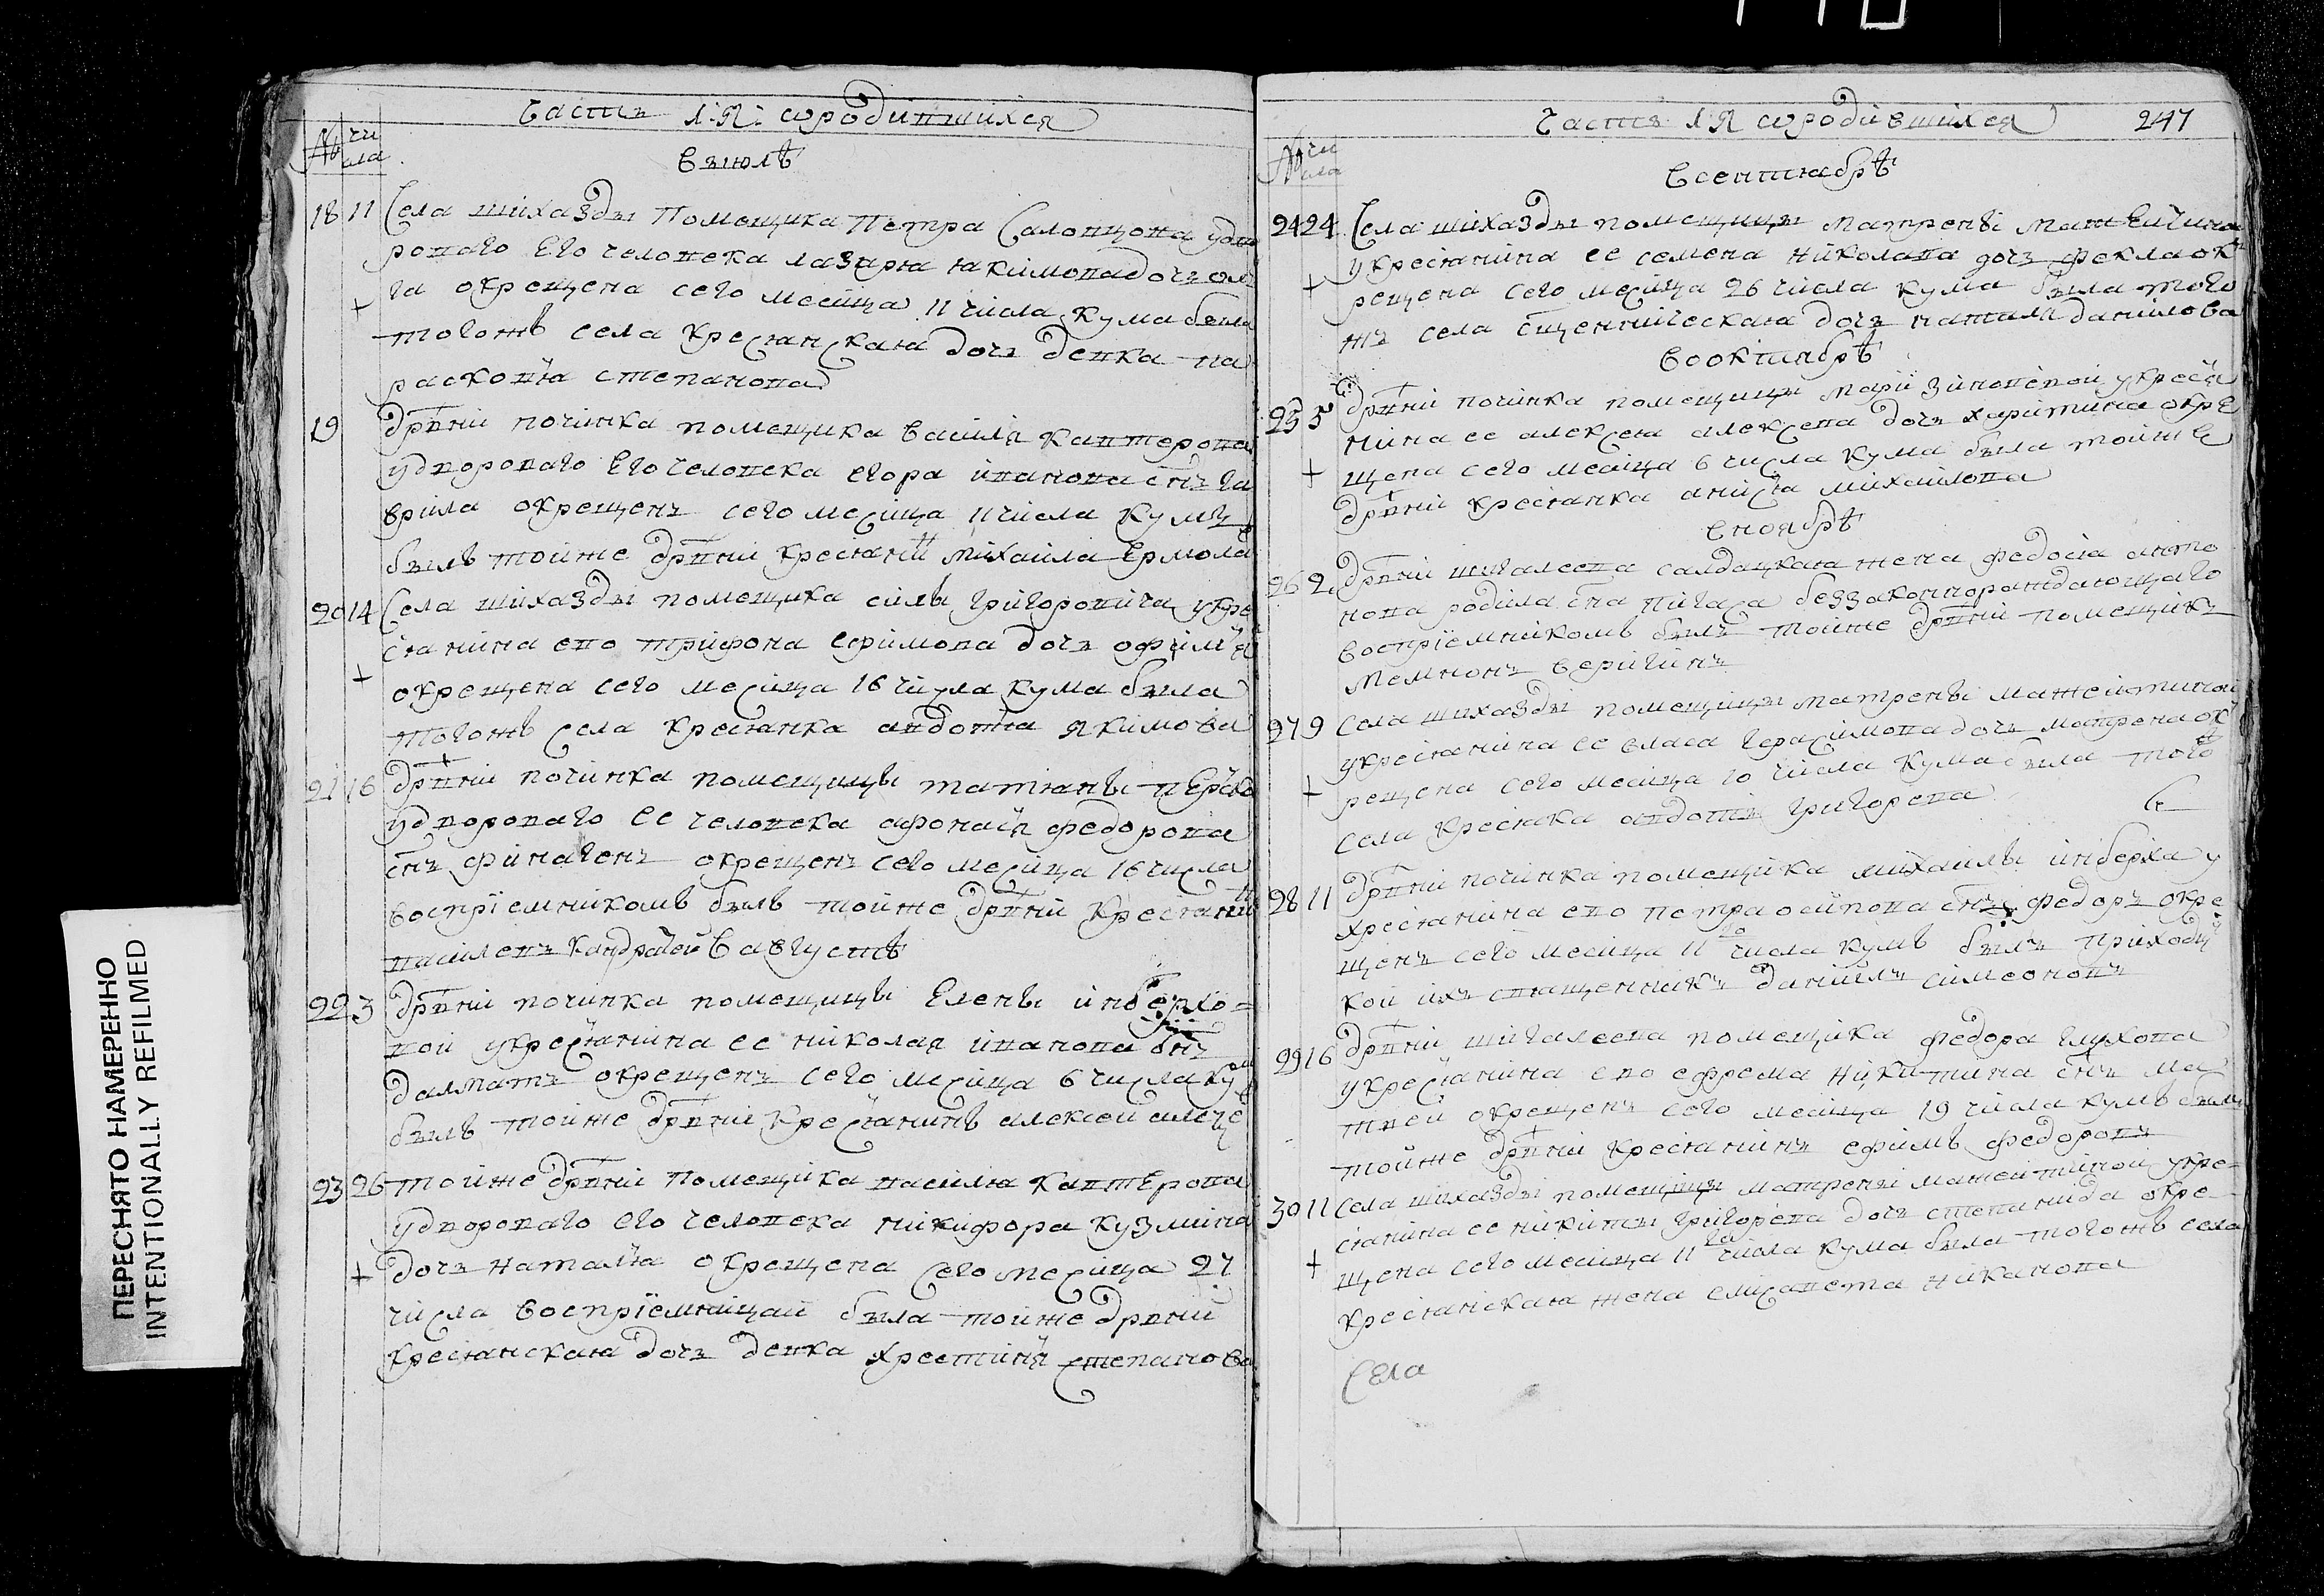 Часть 1:я: ѡродившихся
№ чи
сла
въ июлѣ
18 11 Села шихазды Помещика Петра Салопцова удво
роваго Его человека лазаря иакимова дочь оль
га окрещена сего месяца 11 числа кума была
тогожъ села крестьянская дочь девка па
расковья степанова
19 дрвни починка помещика василя кантерова
удвороваго Его человека егора иванова снъ га
врила окрещенъ сего месяца 11 числа кумъ
былъ тойже дрвни крестьянинъ михаила Ермола
20 14 Села шихазды помещика силы григоровича укре
стьянина ево трифона ефимова дочь офимья
окрещена сего месяца 16 числа кума была
тогожъ села крестьянка авдотья якимова
21 16 дрвни починка помещицы татьяны
удвороваго Ее человека афонася федорова
снъ финагенъ окрещенъ сего месяца 16 числа
восприемникомъ былъ тойже дрвни крестьянинъ
василеи кандратеи
Въ августѣ
22 3 дрвни починка помещицы Елены инберхо=
вои укрестьянина ее николая иванова снъ
далматъ окрещенъ сего месяца 6 числа кумъ
былъ тойже дрвни крестьянинъ алексеи алексе
23 26 тойже дрвни Помещика василя кантерова
удвороваго его человека никифора кузмина
дочь наталья окрещена сего месяца 27
числа восприемницаи была тойже дрвни
крестьянская дочь девка хрестинья степанова
ПЕРЕСНЯТО НАМЕРЕННО
INTENTIONALLY REFILMED
Часть 1я ѡродившихся 247
№ чи
сла
Всентябрѣ
24 24 Села шихазды помещицы матрены
укрестьянина ее семена николава дочь фекла ок
рещена сего месяца 26 числа кума была того
жъ села сщенническая дочь данилова
Вооктябрѣ
25 5 дрвни починка помещицы марьи зиновевои укрестья
нина ее алексея алексева дочь харитина окре
щена сего месяца 6 числа кума была тойже
дрвни крестьянка анисья михаилова
Вноябрѣ
26 2 дрвни шигалеева салдацкая жена федосья анто
нова родила сна пигаса беззаконнорождающаго
восприемникомъ былъ тойже дрвни помещикъ
мемнонъ веригинъ
27 9 села шихазды помещицы матрены
укрестьянина ее власа герасимова дочь матрена ок
рещена сего месяца 10 числа кума была того
села крестьянка авдотья григорева
28 11 дрвни починка помещика михаилы инберха у
хрестьянина ево петра осипова снъ федоръ окре
щенъ сего месяца 11го числа кумъ былъ приходц
кой ихъ священникъ данийлъ симеоновъ
29 16 дрвни шигалеева помещика федора глухова
укрестьянина ево ефрема никитина снъ ма
твеи окрещенъ сего месяца 19 числа кумъ былъ
тойже дрвни крестьянинъ ефимъ федоровъ
30 11 села шихазды помещицы матрены укре=
стьянина ее никиты григорева дочь степанида окре
щена сего месяца 11го числа кума была тогожъ села
крестьянская жена елисавета никанова
Села